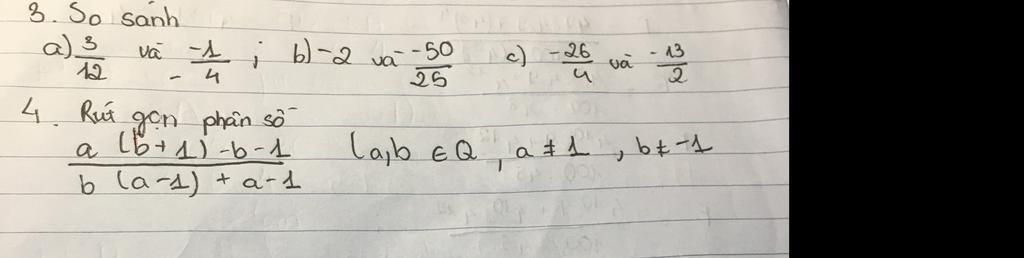 3. So sánh
a) 3/12 và -1/-4 ; b) -2 và -50/25 c) -26/4 và -13/2
4. Rút gọn phân số
a (b+1) -b -1 / b (a-1) + a-1 (a,b ∈ Q, a ≠ 1, b ≠ -1